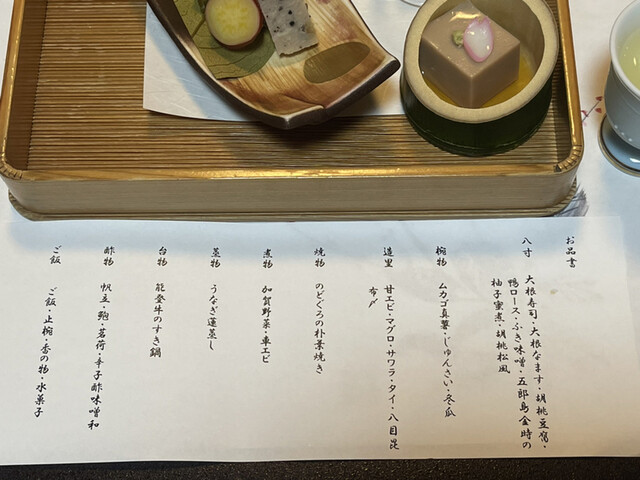 お品書
八寸 大根寿司・大根なます・胡桃豆腐・
鴨ロース・ふき味噌・五郎島金時の
柚子蜜煮・胡桃松風
椀物 ムカゴ真薯・じゅんさい・冬瓜
造里 甘エビ・マグロ・サワラ・タイ・八目昆
布〆
焼物 のどぐろの朴葉焼き
煮物 加賀野菜・車エビ
蒸物 うなぎ蓮蒸し
台物 能登牛のすき鍋
酢物 帆立・鮑・茗荷・辛子酢味噌和
ご飯 ご飯・止椀・香の物・水菓子